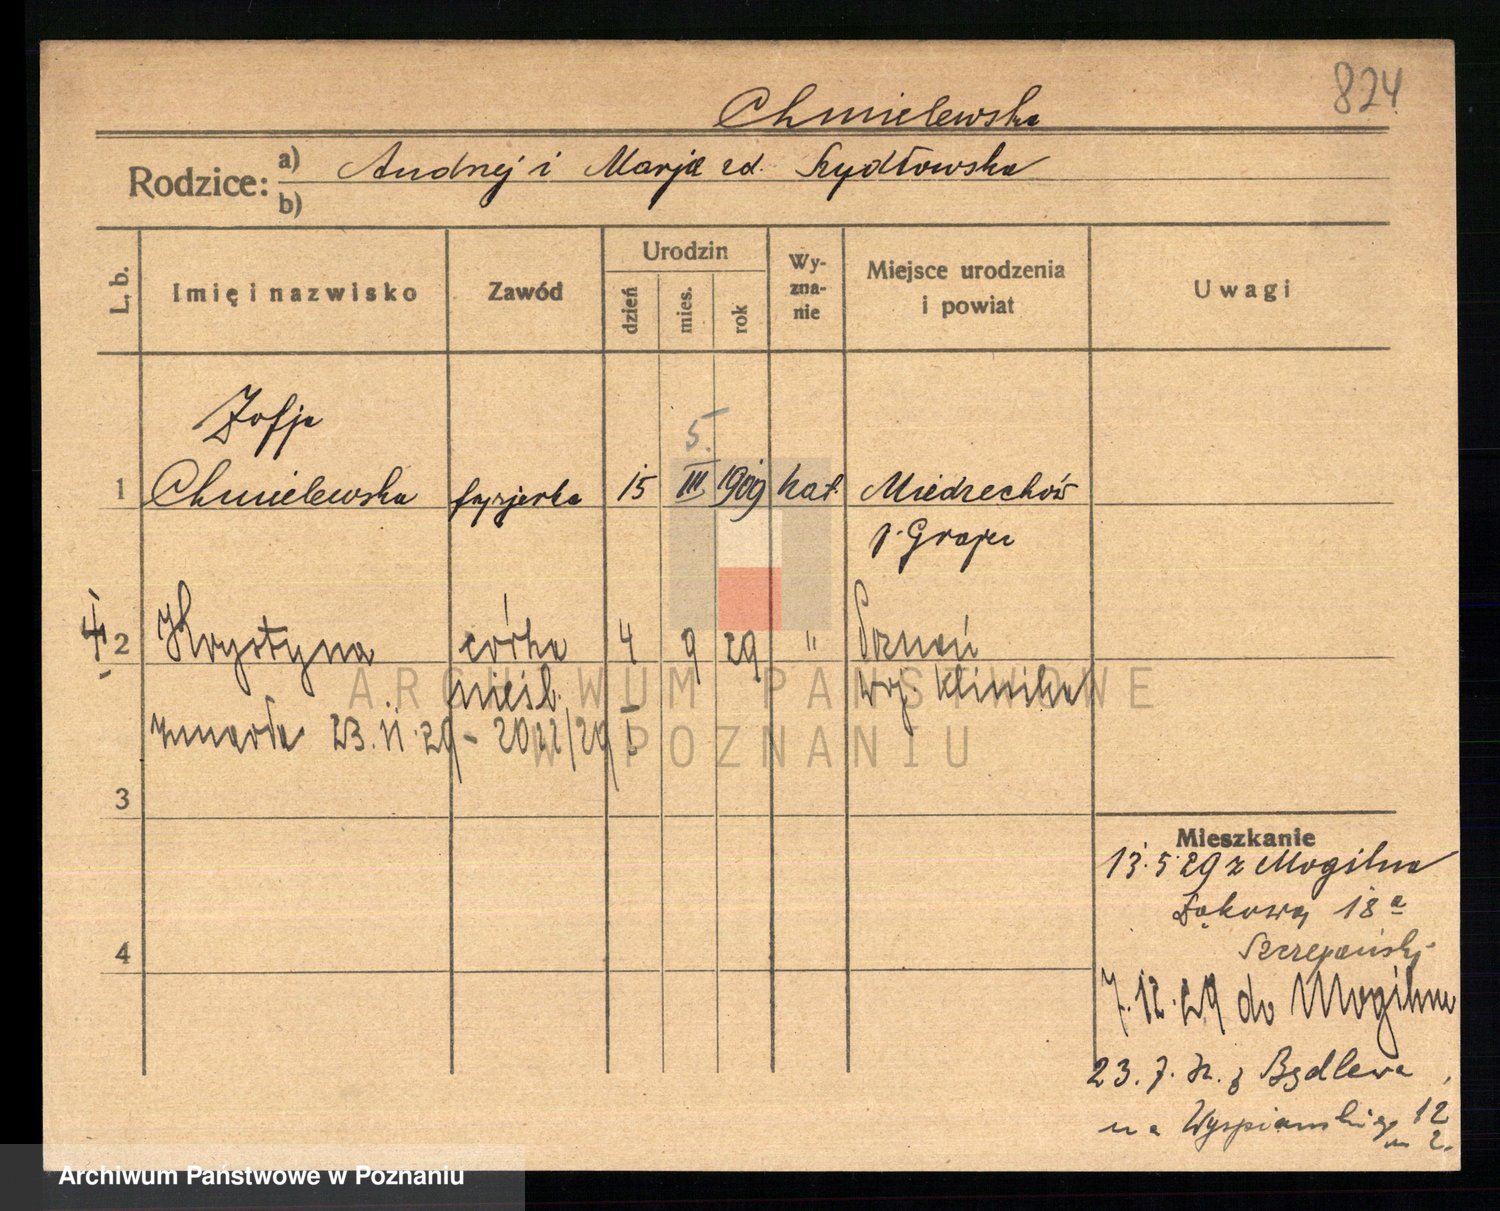 824
Chmielewska
Rodzice: a) Andrzej i Marja zd. Szydłowska
b)
L. b. Imię i nazwisko Zawód Urodzin dzień mies. rok Wy-zna-nie Miejsce urodzenia i powiat Uwagi
Zofja
5.
1 Chmielewska fryzjerka 15 III 1909 kat. Miedzechów
p. Grójec
2 Krystyna córka 4 9 29 " Poznań
nieśl. woj. Klinika
zmarła 23.11.29 - 2022/29 I
3
4
Mieszkanie
13.5.29 z Mogilna
Łąkowa 18a
Szczepański
7.12.29 do Mogilna
23.7. z Będlewa
na Wyspiańskiego 12
m 2.
ARCHIWUM PAŃSTWOWE
W POZNANIU
Archiwum Państwowe w Poznaniu